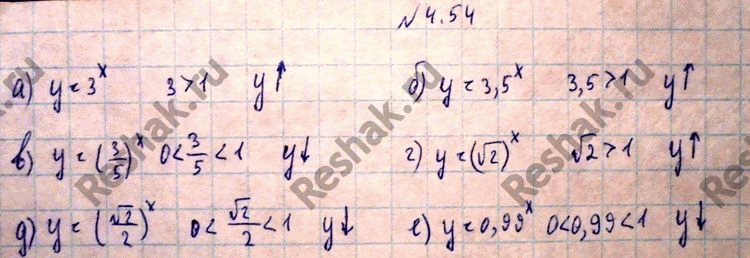 №4.54
а) y = 3^x 3>1 y↑ б) y = 3,5^x 3,5>1 y↑
в) y = (3/5)^x 0<3/5<1 y↓ г) y = (√2)^x √2>1 y↑
д) y = (√2/2)^x 0<√2/2<1 y↓ е) y = 0,99^x 0<0,99<1 y↓
Reshak.ru
Reshak.ru
Reshak.ru
Reshak.ru